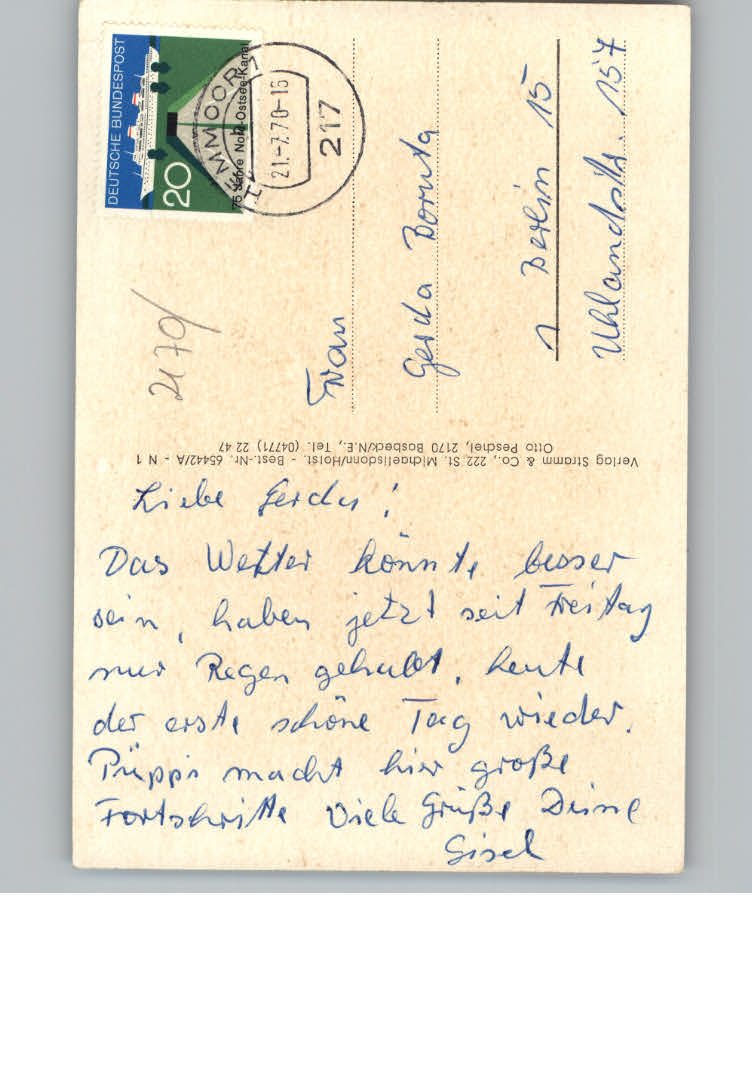 Liebe Gerda!
Das Wetter könnte besser
sein, haben jetzt seit Freitag
nur Regen gehabt, heute
der erste schöne Tag wieder.
Püppi macht hier große
Fortschritte Viele Grüße Deine
Gisel
Verlag Stramm & Co., 222 St. Michaelisdonn/Holst. - Best.-Nr. 65442/A - N 1
Otto Peschel, 2170 Basbeck/N.E., Tel. (04771) 22 47
Frau
Gerda Boruta
1 Berlin 15
Uhlandstr. 157
2170/
DEUTSCHE BUNDESPOST
20
75 Jahre Nord-Ostsee-Kanal
HEMMOOR 1
21.-7.70-16
217